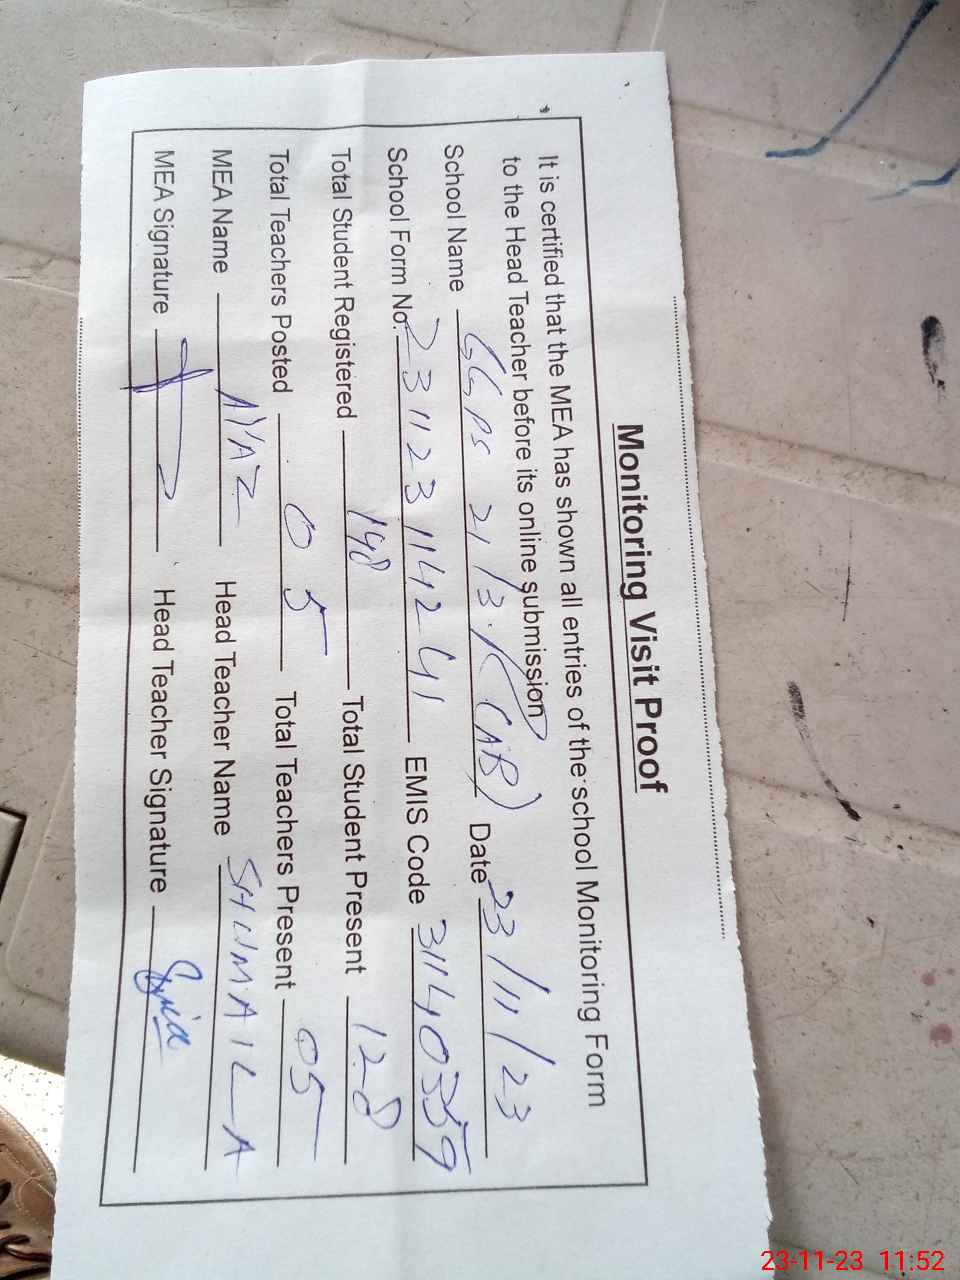 Monitoring Visit Proof
It is certified that the MEA has shown all entries of the school Monitoring Form
to the Head Teacher before its online submission
School Name GGPS 21/3.R (AB) Date 23/11/23
School Form No. 23112311424 41 EMIS Code 31140359
Total Student Registered 148 Total Student Present 128
Total Teachers Posted 05 Total Teachers Present 05
MEA Name AYAZ Head Teacher Name SHUMAILA
MEA Signature Head Teacher Signature
23-11-23 11:52